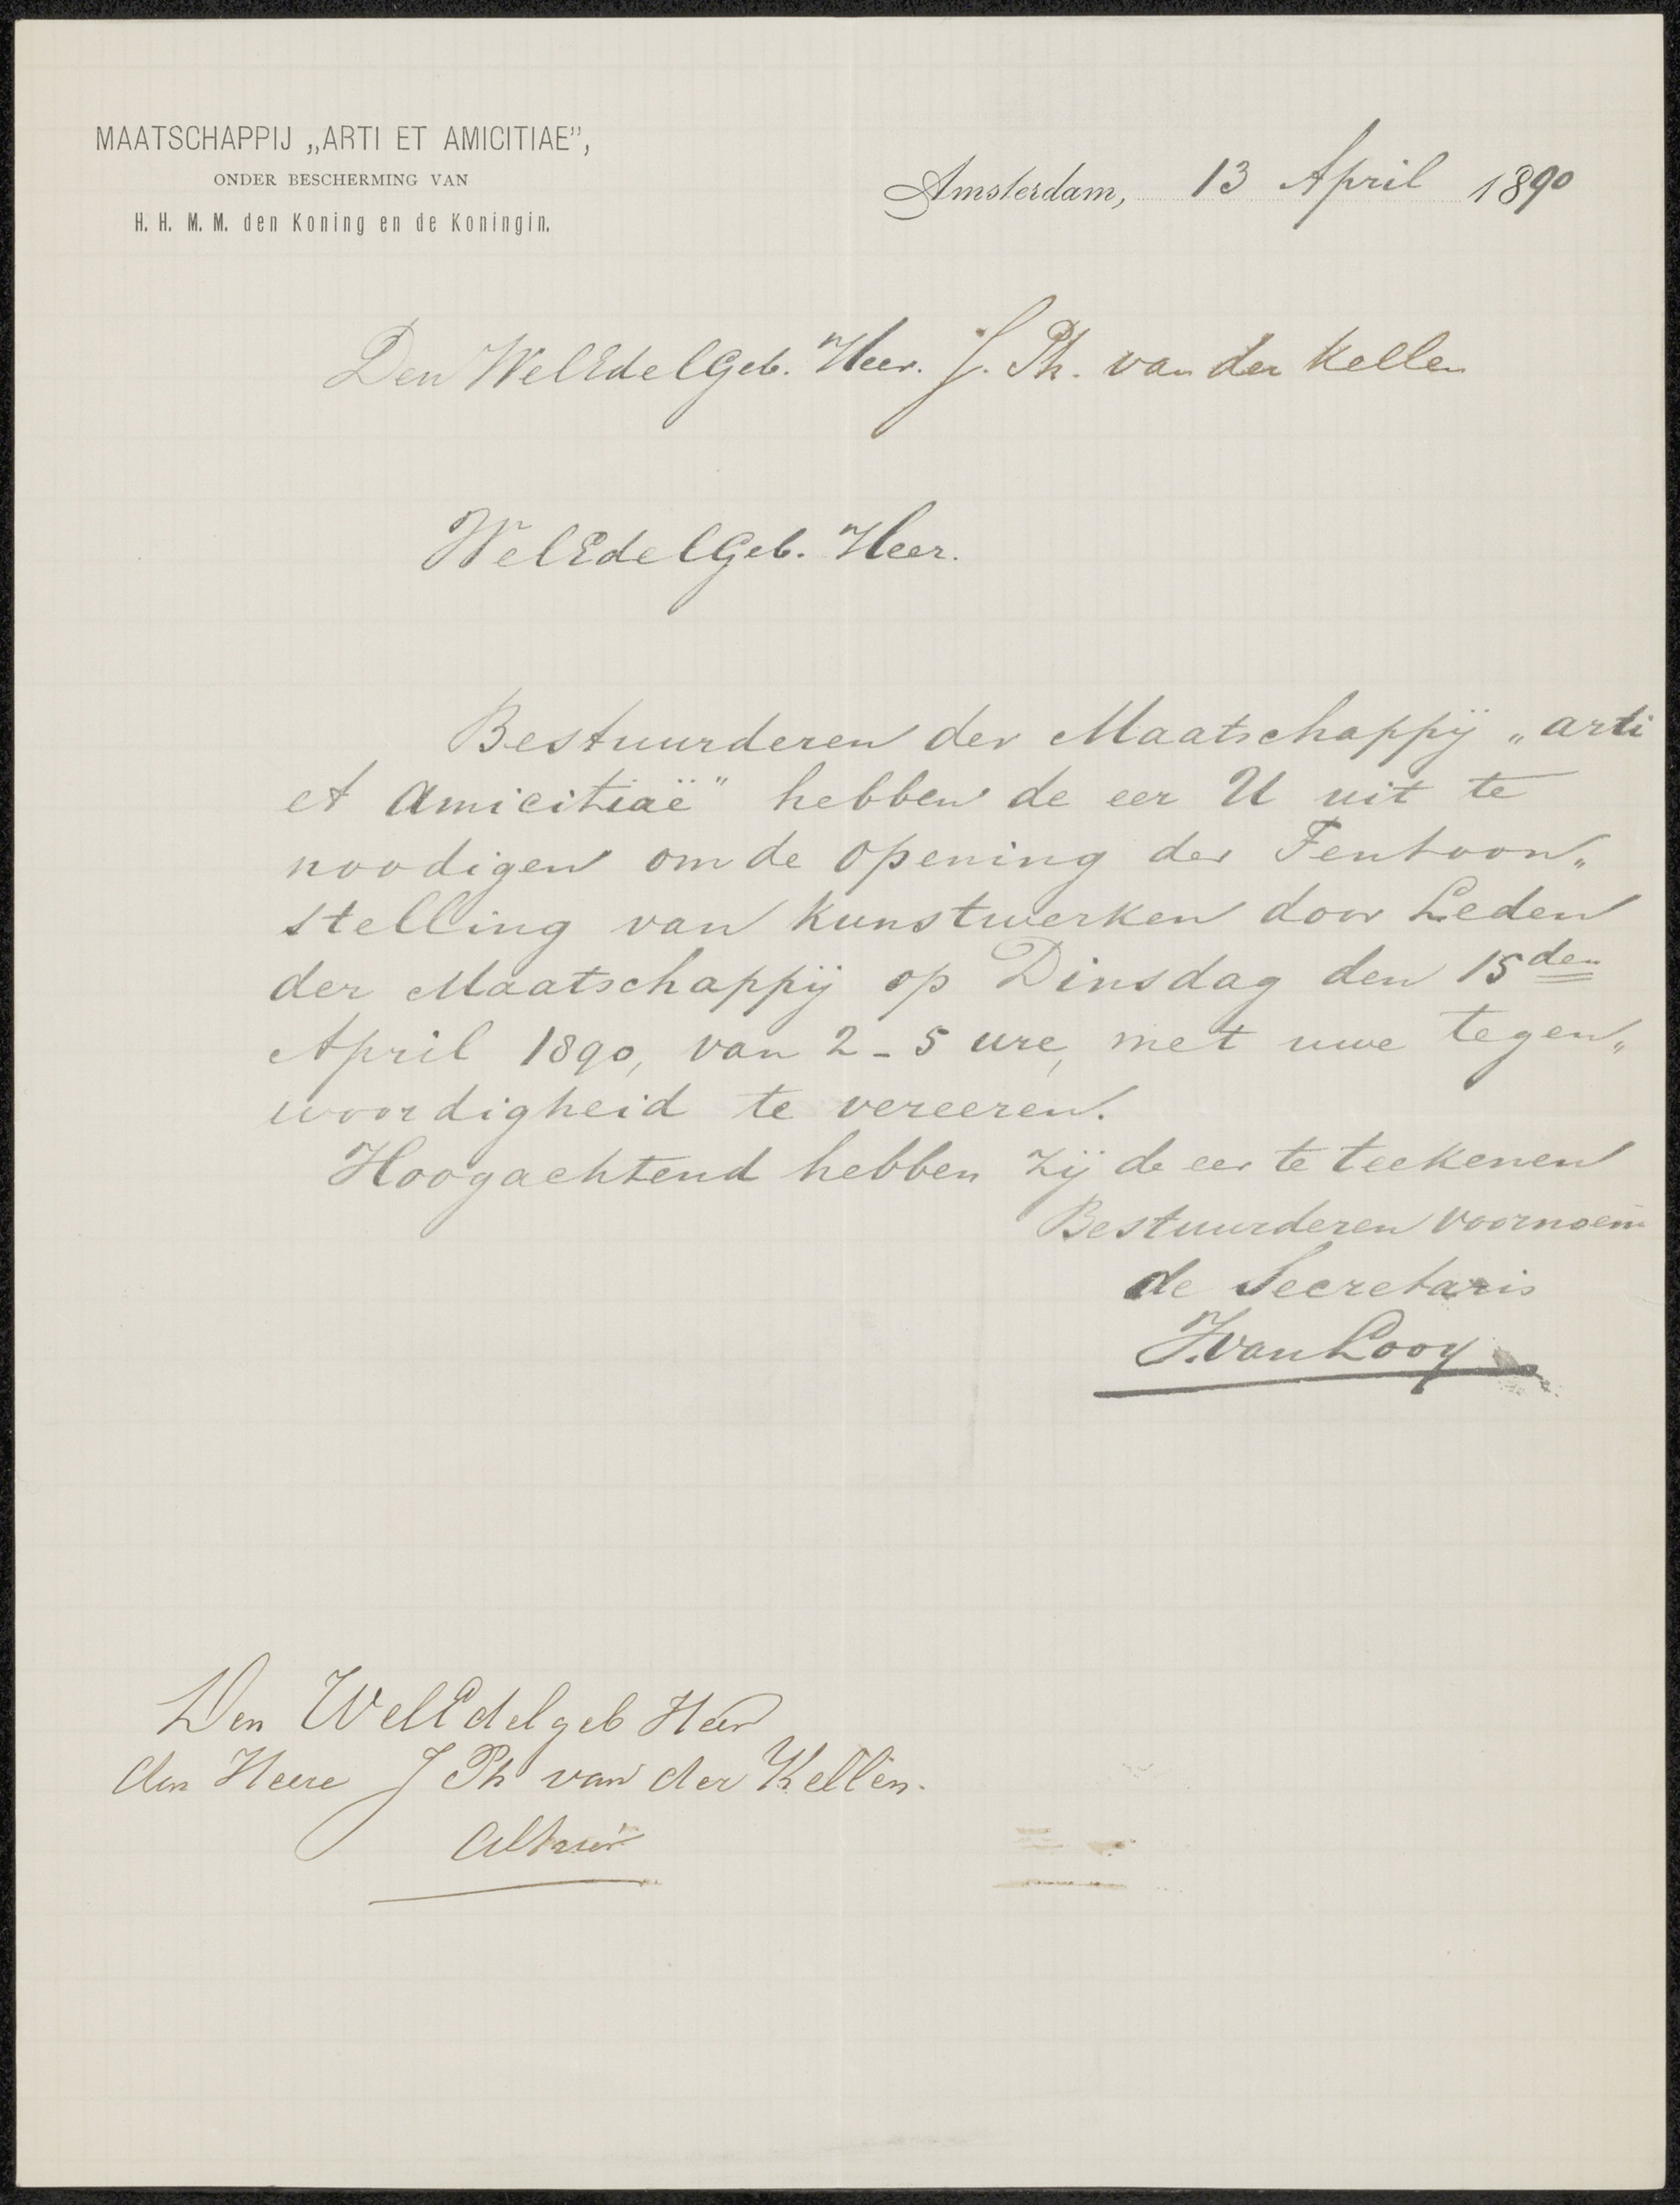 MAATSCHAPPIJ „ARTI ET AMICITIAE”,
ONDER BESCHERMING VAN
H. H. M. M. den Koning en de Koningin.
Amsterdam, 13 April 1890
Den WelEdelGeb. Heer. J. Ph. van der Kellen
WelEdelGeb. Heer.
Bestuurderen der Maatschappij „arti
et Amicitiaë” hebben de eer U uit te
noodigen om de opening der Tentoon„
stelling van Kunstwerken door Leden
der Maatschappij op Dinsdag den 15den
April 1890, van 2 - 5 ure, met uwe tegen„
woordigheid te vereeren.
Hoogachtend hebben zij de eer te teekenen
Bestuurderen voornoem
de Secretaris
J. van Looy
Den WelEdelgeb Heer
den Heere J Ph van der Kellen.
Alhier